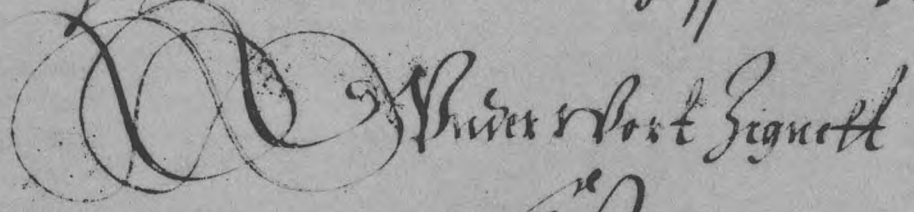 Vnder Wort Zignett